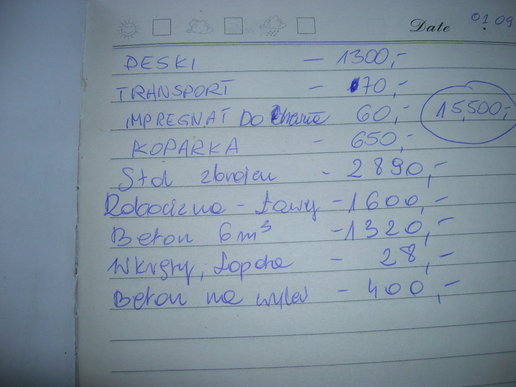 Date 01.09
DESKI - 1300,-
TRANSPORT - 70,-
IMPREGNAT DO 60,- 15,500,-
KOPARKA - 650,-
Stal zbrojen - 2890,-
Robocizna - Ławy - 1600,-
Beton 6m³ - 1320,-
Wkręty, Łopata - 28,-
Beton na wylew - 400,-